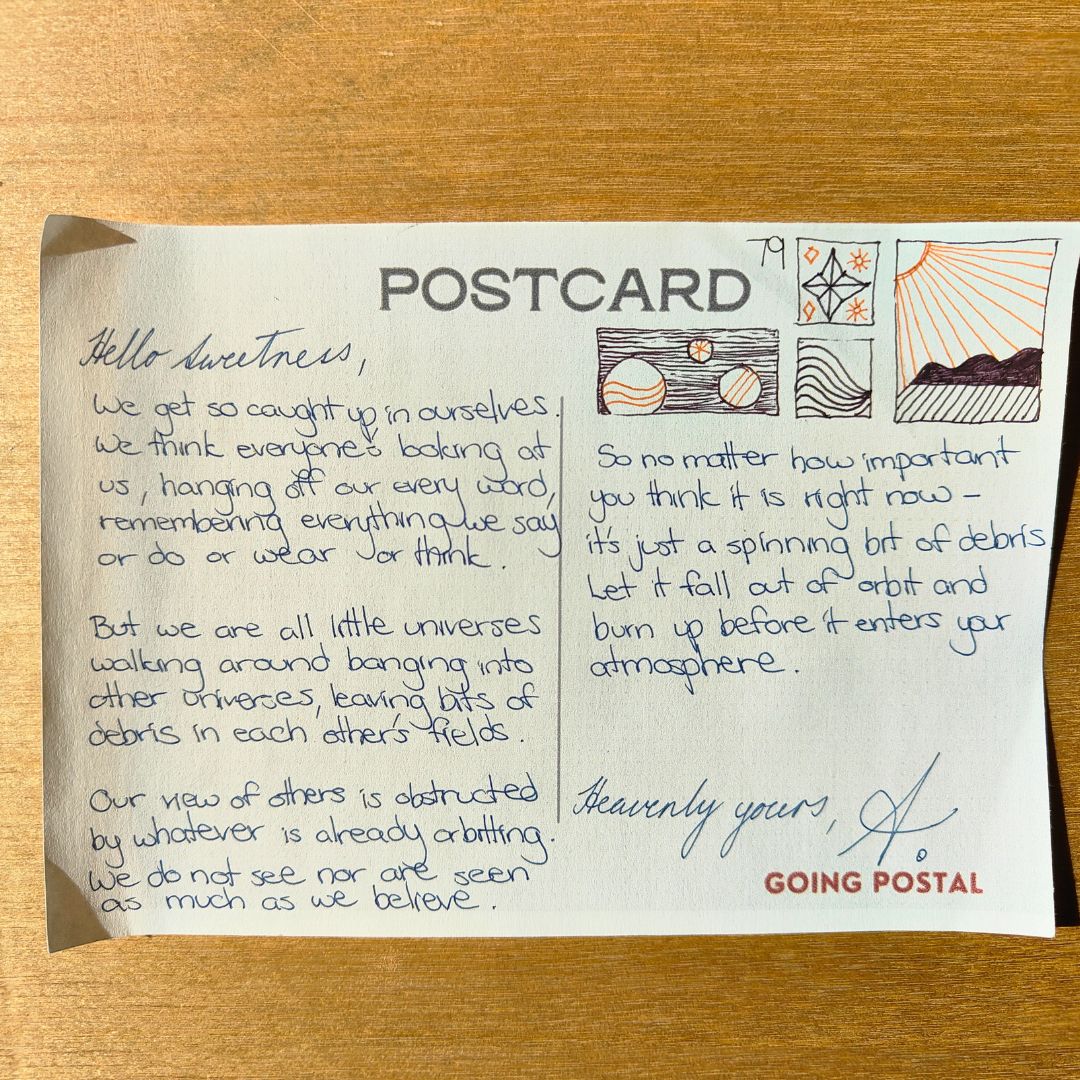 POSTCARD
79
Hello Sweetness,
We get so caught up in ourselves.
We think everyone's looking at
us, hanging off our every word,
remembering everything we say
or do or wear or think.
But we are all little universes
walking around banging into
other universes, leaving bits of
debris in each other's fields.
Our view of others is obstructed
by whatever is already orbiting.
We do not see nor are seen
as much as we believe.
So no matter how important
you think it is right now –
it's just a spinning bit of debris
Let it fall out of orbit and
burn up before it enters your
atmosphere.
Heavenly yours, A.
GOING POSTAL